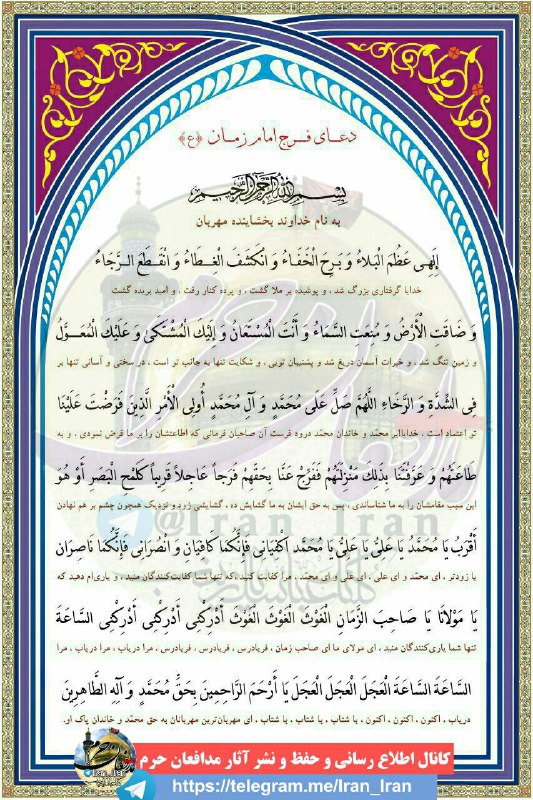 دعـای فـرج امام زمـان ﴿ع﴾
بِسْمِ اللهِ الرَّحْمنِ الرَّحِيمِ
به نام خداوند بخشاینده مهربان
إِلٰهِی عَظُمَ الْبَلَاءُ وَ بَرِحَ الْخَفَاءُ وَ انْکَشَفَ الْغِطَاءُ وَ انْقَطَعَ الرَّجَاءُ
خدایا گرفتاری بزرگ شد ، و پوشیده بر ملا گشت ، و پرده کنار رفت ، و امید بریده گشت
وَ ضَاقَتِ الْأَرْضُ وَ مُنِعَتِ السَّمَاءُ وَ أَنْتَ الْمُسْتَعَانُ وَ إِلَیْکَ الْمُشْتَکَی وَ عَلَیْکَ الْمُعَـوَّلُ
و زمین تنگ شد ، و خیرات آسمان دریغ شد و پشتیبان تویی ، و شکایت تنها به جانب تو است ، در سختی و آسانی تنها بر
فِی الشِّدَّةِ وَ الرَّخَاءِ اللَّهُمَّ صَلِّ عَلَی مُحَمَّدٍ وَ آلِ مُحَمَّدٍ أُولِی الْأَمْرِ الَّذِینَ فَرَضْتَ عَلَیْنَا
تو اعتماد است ، خدایا!بر محمّد و خاندان محمّد دروه فرست آن صاحبان فرمانی که اطاعتشان را بر ما فرض نمودی ، و به
طَاعَتَهُمْ وَ عَرَّفْتَنَا بِذَلِکَ مَنْزِلَتَهُمْ فَفَرِّجْ عَنَّا بِحَقِّهِمْ فَرَجاً عَاجِلاً قَرِیباً کَلَمْحِ الْبَصَرِ أَوْ هُوَ
این سبب مقامشان را به ما شناساندی ، پس به حق ایشان به ما گشایش ده ، گشایشی زود و نزدیک همچون چشم بر هم نهادن
أَقْرَبُ یَا مُحَمَّدُ یَا عَلِیُّ یَا عَلِیُّ یَا مُحَمَّدُ اکْفِیَانِی فَإِنَّکُمَا کَافِیَانِ وَ انْصُرَانِی فَإِنَّکُمَا نَاصِرَانِ
یا زودتر ، ای محمّد و ای علی ، ای علی و ای محمّد ، مرا کفایت کنید ،که تنها شما کفایت‌کنندگان منید ، و یاری‌ام دهید که
یَا مَوْلَانَا یَا صَاحِبَ الزَّمَانِ الْغَوْثَ الْغَوْثَ الْغَوْثَ أَدْرِکْنِی أَدْرِکْنِی أَدْرِکْنِی السَّاعَةَ
تنها شما یاری‌کنندگان منید ، ای مولای ما ای صاحب زمان ، فریادرس ، فریادرس ، فریادرس ، مرا دریاب ، مرا دریاب ، مرا
السَّاعَةَ السَّاعَةَ الْعَجَلَ الْعَجَلَ الْعَجَلَ یَا أَرْحَمَ الرَّاحِمِینَ بِحَقِّ مُحَمَّدٍ وَ آلِهِ الطَّاهِرِینَ
دریاب ، اکنون ، اکنون ، اکنون ، با شتاب ، با شتاب ، با شتاب ، ای مهربان‌ترین مهربانان به حق محمّد و خاندان پاک او.
@Iran_Iran
کانال اطلاع رسانی و حفظ و نشر آثار مدافعان حرم
https://telegram.me/Iran_Iran